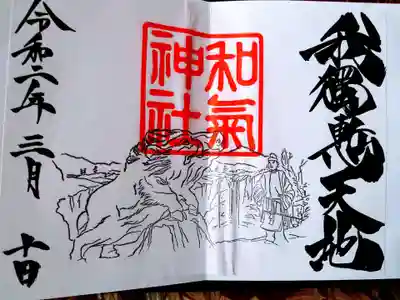 我獨慙天地
和氣
神社
令和二年三月十日